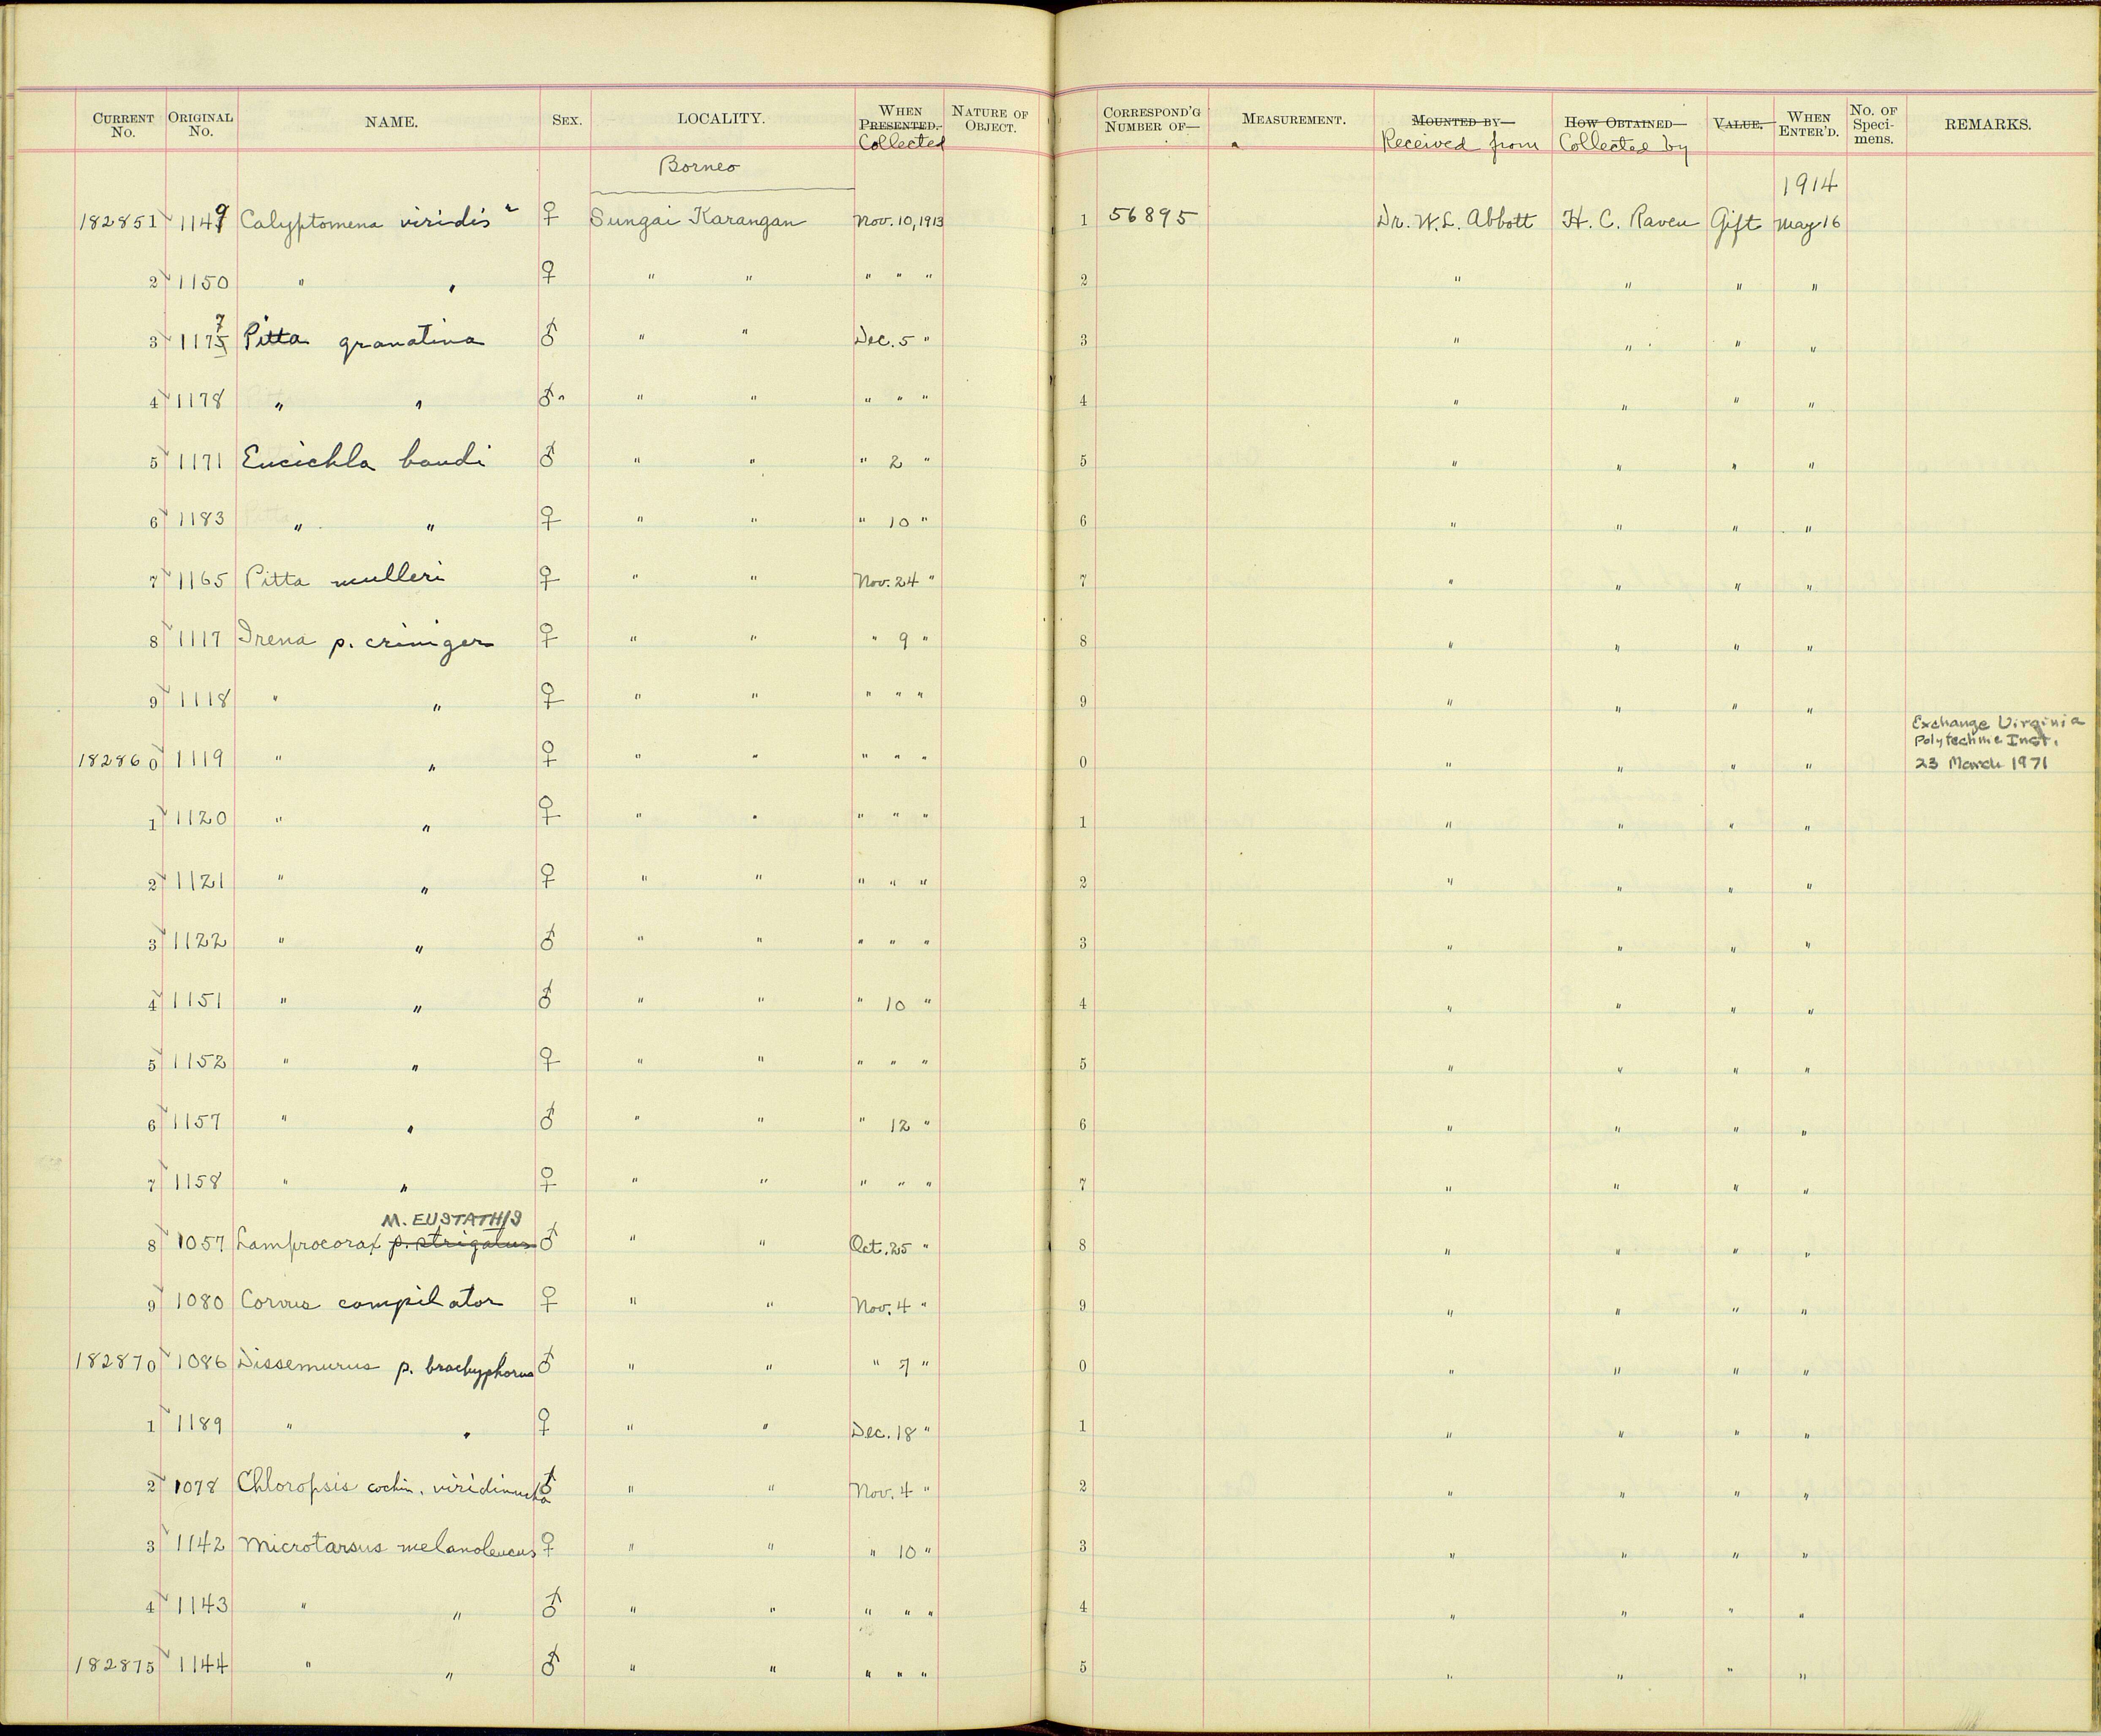 CURRENT No. ORIGINAL No. NAME. SEX. LOCALITY. WHEN PRESENTED. Collected NATURE OF OBJECT. CORRESPOND'G NUMBER OF— MEASUREMENT. MOUNTED BY— Received from HOW OBTAINED— Collected by VALUE. WHEN ENTER'D. No. OF Speci-mens. REMARKS.
Borneo
1914
182851 1149 Calyptomena viridis ♀ Sungai Karangan Nov. 10, 1913 1 56895 Dr. W. L. Abbott H. C. Raven Gift May 16
2 1150 " " ♀ " " " " " 2 " " " "
3 1177 Pitta granatina ♂ " " Dec. 5 " 3 " " " "
4 1178 " " ♂ " " " " " " 4 " " " "
5 1171 Eucichla baudi ♂ " " " 2 " 5 " " " "
6 1183 " " ♀ " " " 10 " 6 " " " "
7 1165 Pitta mulleri ♀ " " Nov. 24 " 7 " " " "
8 1117 Irena p. criniger ♀ " " " 9 " 8 " " " "
9 1118 " " ♀ " " " " " 9 " " " "
182860 1119 " " ♀ " " " " " 0 " " " " Exchange Virginia Polytechnic Inst. 23 March 1971
1 1120 " " ♀ " " " " " 1 " " " "
2 1121 " " ♀ " " " " " 2 " " " "
3 1122 " " ♂ " " " " " 3 " " " "
4 1151 " " ♂ " " " 10 " 4 " " " "
5 1152 " " ♀ " " " " " 5 " " " "
6 1157 " " ♂ " " " 12 " 6 " " " "
7 1158 " " ♀ " " " " " 7 " " " "
M. EUSTATHIS
8 1057 Lamprocorax p. strigatus ♂ " " Oct. 25 " 8 " " " "
9 1080 Corvus compilator ♀ " " Nov. 4 " 9 " " " "
182870 1086 Dissemurus p. brachyphorus ♂ " " " 7 " 0 " " " "
1 1189 " " ♀ " " Dec. 18 " 1 " " " "
2 1078 Chloropsis cochin. viridinucha ♂ " " Nov. 4 " 2 " " " "
3 1142 Microtarsus melanoleucus ♀ " " " 10 " 3 " " " "
4 1143 " " ♂ " " " " " 4 " " " "
182875 1144 " " ♂ " " " " " 5 " " " "